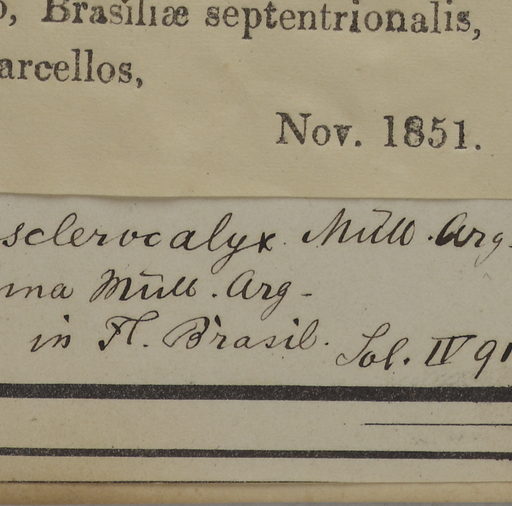 Brasiliæ septentrionalis,
arcellos,
Nov. 1851.
sclerocalyx Müll. Arg.
Müll. Arg-
in Fl. Brasil. Sol. IV 91